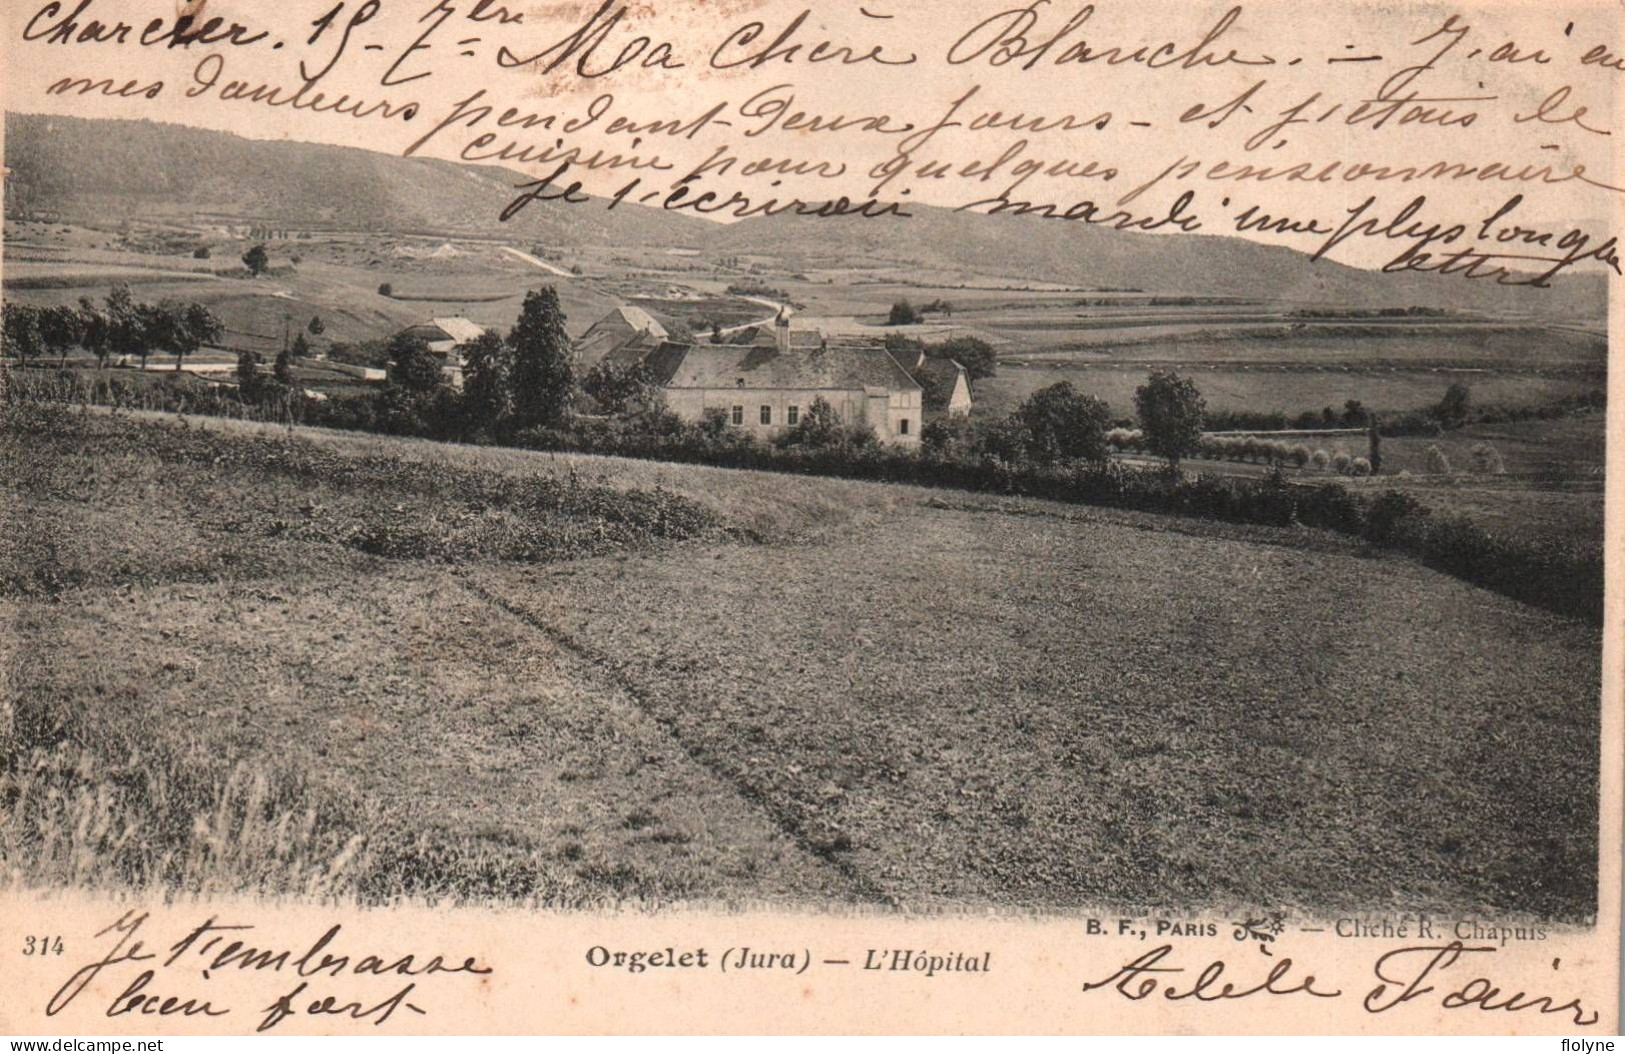 Charcier. 15 - 7bre = Ma Chère Blanche. — J'ai eu
mes douleurs pendant deux jours - et j'etais de
cuisine pour quelques pensionnaire
Je t'écrirai mardi une plus longue
lettre
314
Je t'embrasse
bien fort
Orgelet (Jura) — L'Hôpital
B. F., PARIS — Cliché R. Chapuis
Adèle
delcampe.net
flolyne